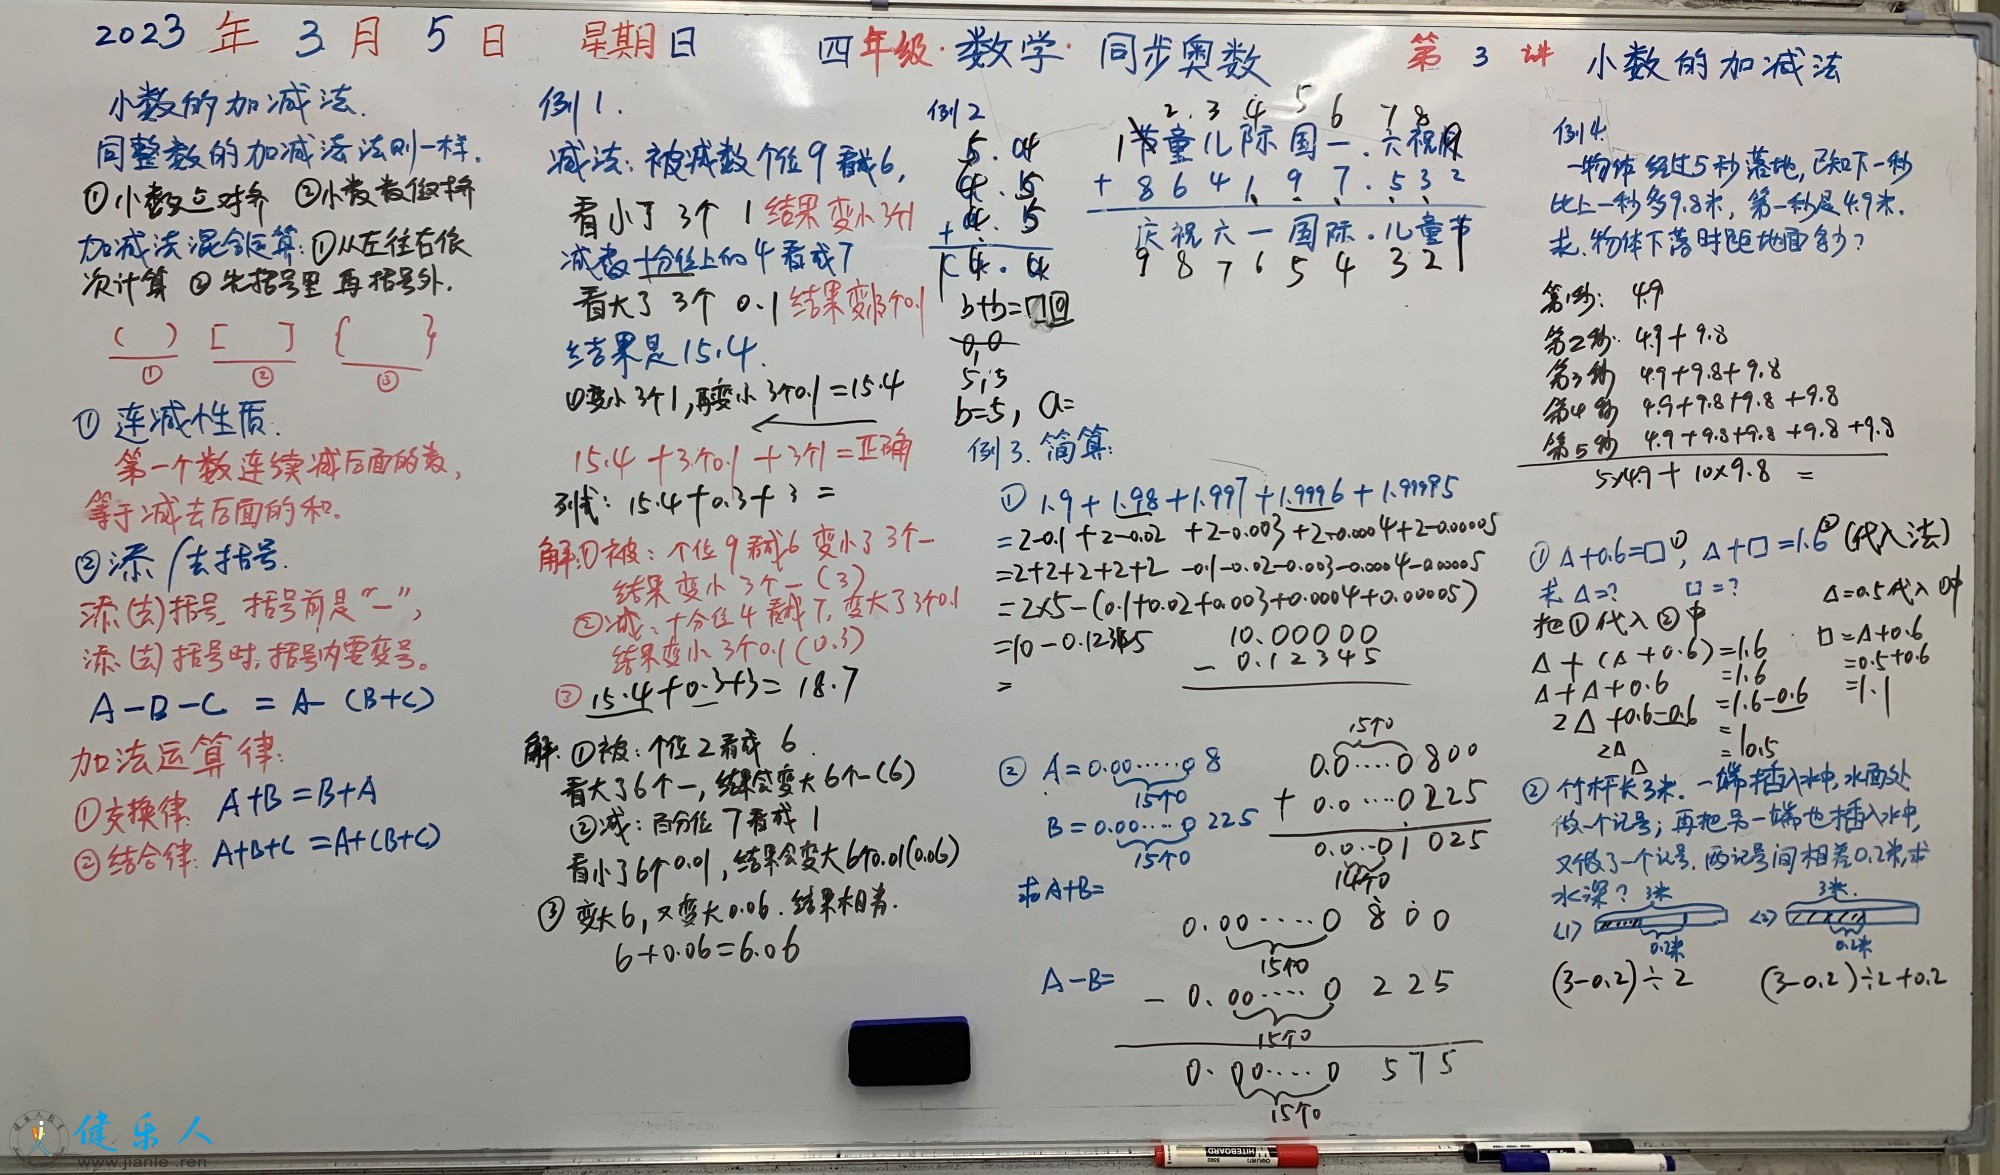 2023年3月5日 星期日 四年级·数学·同步奥数 第3讲 小数的加减法
小数的加减法.
同整数的加减法法则一样.
①小数点对齐 ②小数数位对齐
加减法混合运算:①从左往右依
次计算 ②先括号里 再括号外.
( ) [ ] { }
① ② ③
① 连减性质.
第一个数连续减后面的数,
等于减去后面的和.
②添/去括号.
添(去)括号,括号前是"一",
添(去)括号时,括号内需变号。
A-B-C = A-(B+C)
加法运算律:
①交换律: A+B=B+A
②结合律: A+B+C=A+(B+C)
例1.
减法:被减数个位9看成6,
看小了3个1 结果变小3个1
减数十分位上的4看成7
看大了3个0.1 结果变小3个0.1
结果是15.4.
①变小3个1,再变小3个0.1=15.4
15.4+3个0.1+3个1=正确
列式: 15.4+0.3+3=
解:①被:个位9看成6 变小了3个一
结果变小3个一(3)
②减:十分位4看成7,变大了3个0.1
结果变小3个0.1(0.3)
③ 15.4+0.3+3=18.7
解:①被:个位2看成6.
看大了6个一,结果会变大6个一(6)
②减:百分位7看成1
看小了6个0.01,结果会变大6个0.01(0.06)
③变大6,又变大0.06.结果相差.
6+0.06=6.06
例2
b+b=□0
0,0
5,5
b=5, a=
1 2. 3 4 5 6 7 8 9
节童儿际国一.六祝庆
+ 8 6 4 1 9 7.5 3 2
庆祝六一国际.儿童节
9 8 7 6 5 4 3 2 1
例3.简算:
① 1.9+1.98+1.997+1.9996+1.99995
=2-0.1+2-0.02+2-0.003+2-0.0004+2-0.00005
=2+2+2+2+2-0.1-0.02-0.003-0.0004-0.00005
=2×5-(0.1+0.02+0.003+0.0004+0.00005)
=10-0.12345
=
10.00000
- 0.12345
② A=0.00·····08
15个0
B=0.00·····0225
15个0
求A+B=
15个0
0.0····0800
+ 0.0····0225
0.0··01025
14个0
A-B=
0.00·····0800
15个0
- 0.00·····0225
15个0
0.00·····0575
15个0
例4.
一物体经过5秒落地,已知下一秒
比上一秒多9.8米,第一秒是4.9米.
求.物体下落时距地面多少?
第1秒: 4.9
第2秒: 4.9+9.8
第3秒 4.9+9.8+9.8
第4秒 4.9+9.8+9.8+9.8
第5秒 4.9+9.8+9.8+9.8+9.8
5×4.9+10×9.8=
① △+0.6=□①, △+□=1.6②(代入法)
求△=? □=?
把①代入②中
△+(△+0.6)=1.6
△+△+0.6=1.6
2△+0.6-0.6=1.6-0.6
2△=1
△=0.5
△=0.5代入①中
□=△+0.6
=0.5+0.6
=1.1
② 竹杆长3米.一端插入水中,水面处
做一个记号;再把另一端也插入水中,
又做了一个记号.两记号间相差0.2米,求
水深?
3米 3米.
(1) (2)
0.2米 0.2米
(3-0.2)÷2 (3-0.2)÷2+0.2
健乐人
www.jianle.ren